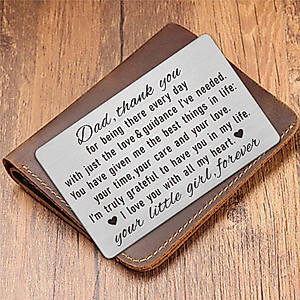 Dad, thank you
for being there every day
with just the love & guidance I've needed.
You have given me the best things in life:
your time, your care and your love.
I'm truly grateful to have you in my life.
I love you with all my heart.
your little girl, forever